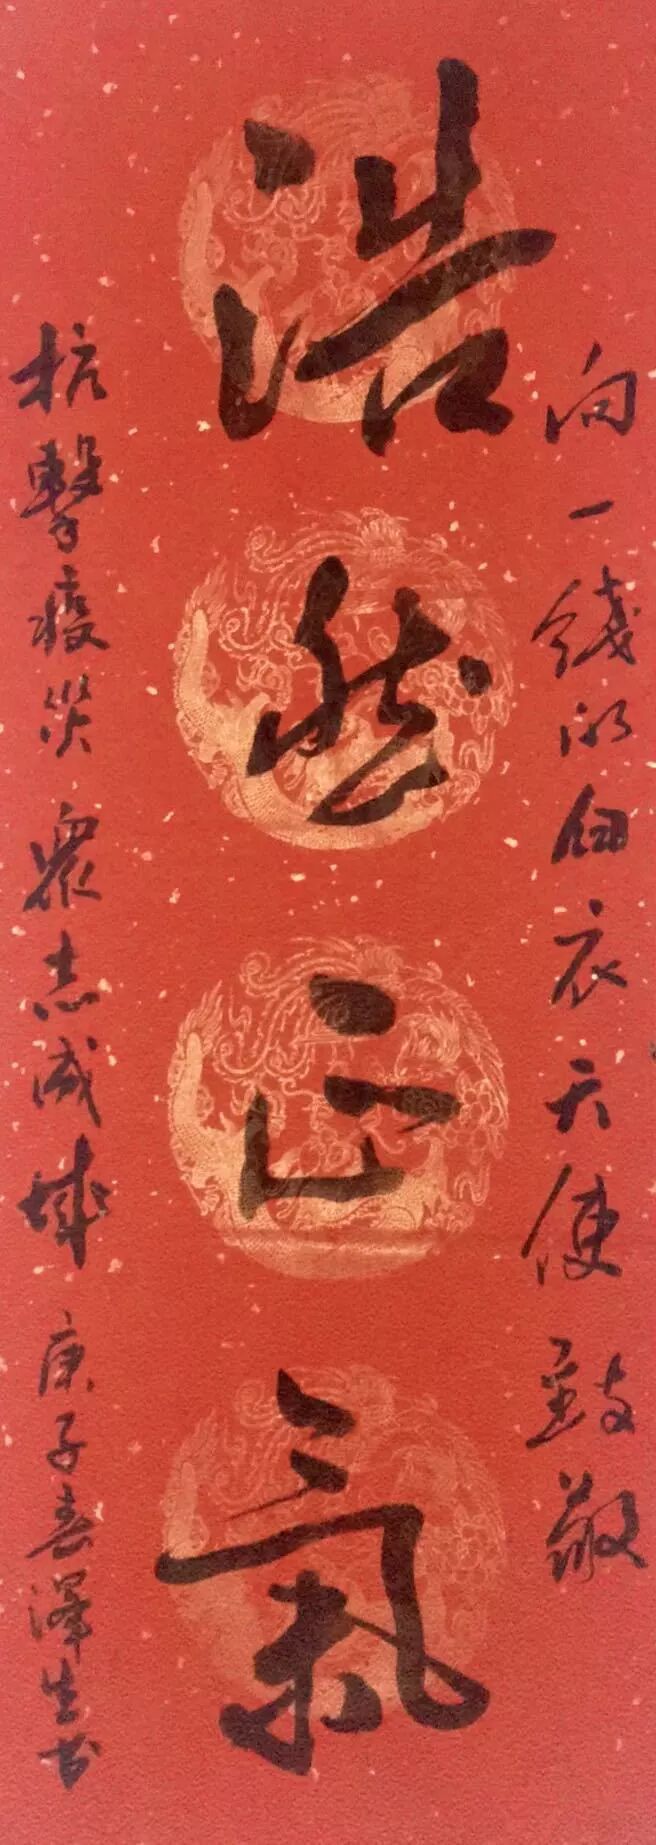 向一线的白衣天使致敬
浩然正氣
抗擊疫災眾志成城 庚子春澤生书